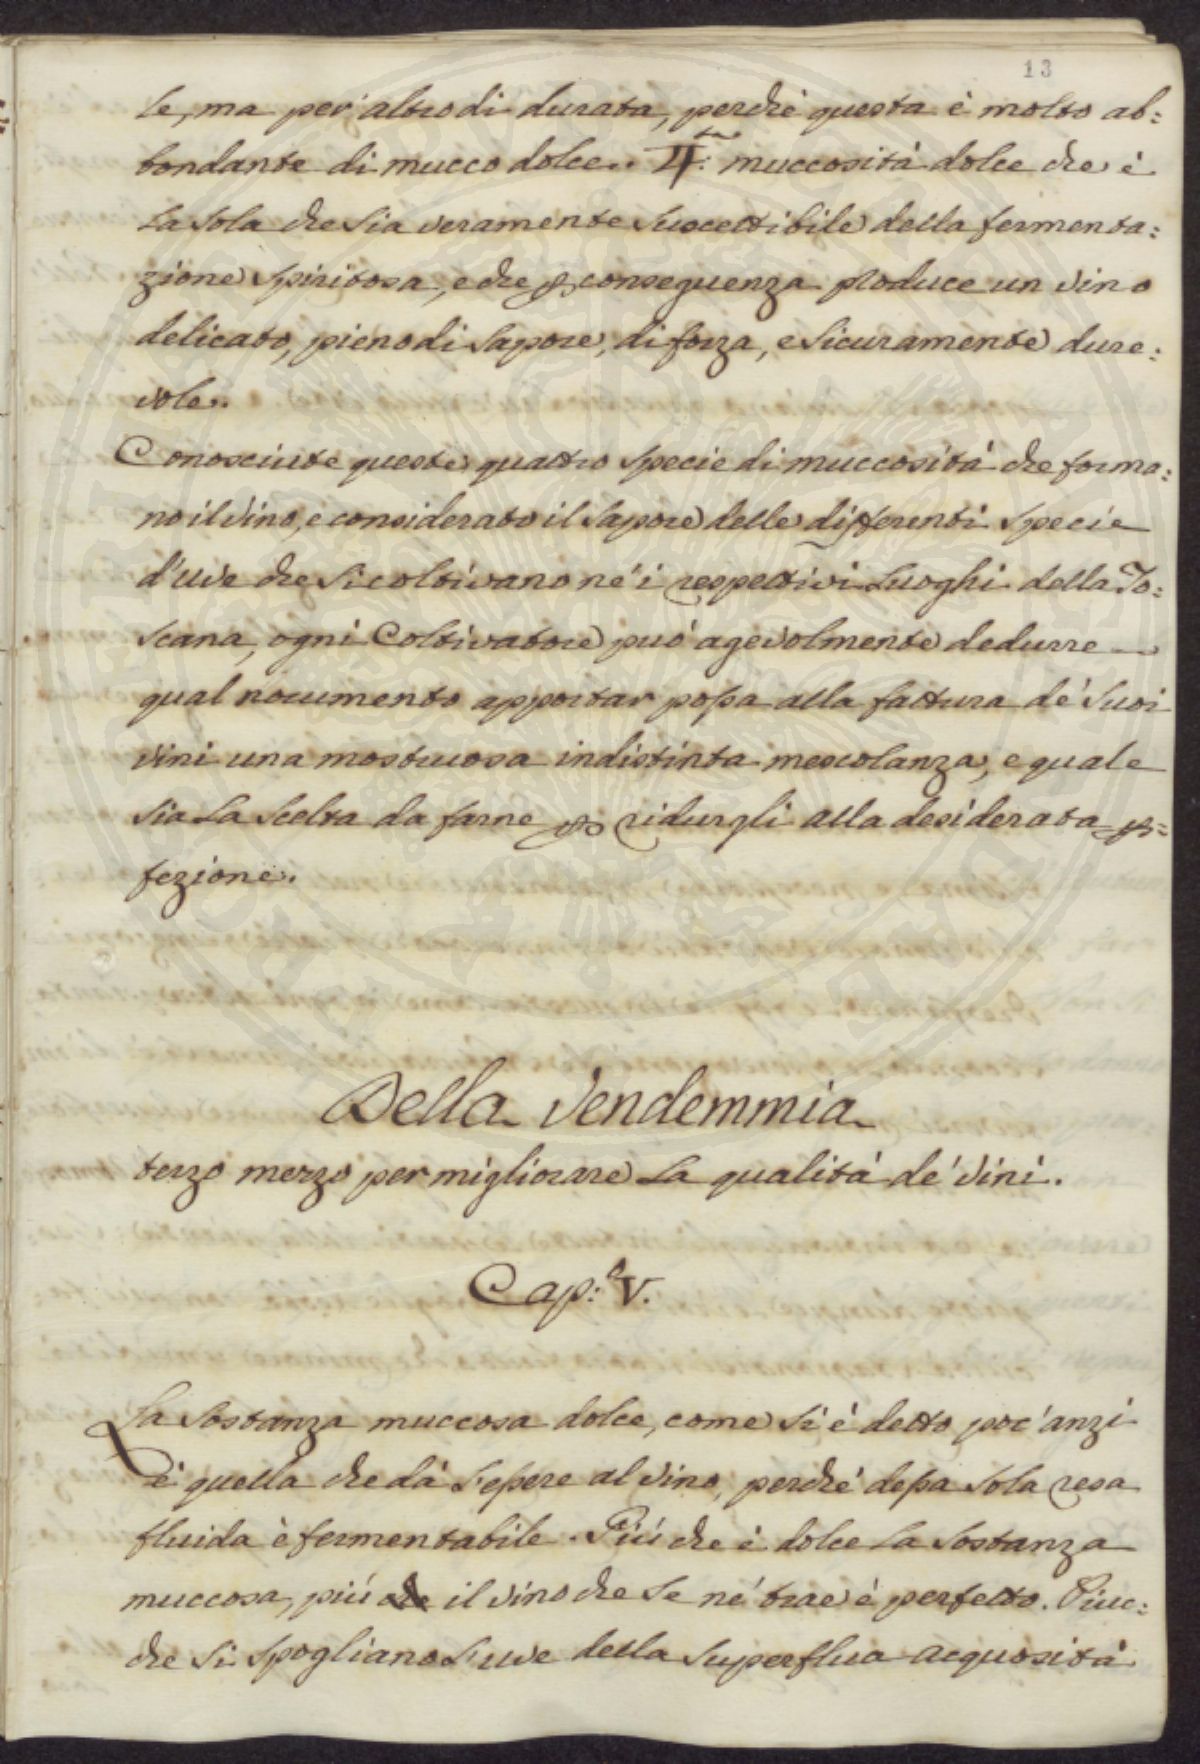 13
le, ma per altro di durata, perchè questa è molto ab:
bondante di mucco dolce. 4.ta muccosità dolce che è
la sola che sia veramente suscettibile della fermenta:
zione spiritosa, e che ꝑ conseguenza produce un vino
delicato, pieno di sapore, di forza, e sicuramente dure:
vole.
Conosciute queste quattro specie di muccosità che forma:
no il vino, e considerato il sapore delle differenti specie
d'uve che si coltivano né i respettivi Luoghi della To:
scana, ogni Coltivatore può agevolmente dedurre
qual nocumento apportar possa alla fattura de' suoi
vini una mostruosa indistinta mescolanza, e quale
sia la scelta da farne ꝑ ridurgli alla desiderata ꝑ=
fezione.
Della Vendemmia
terzo mezzo per migliorare la qualità de' vini.
Cap: V.
La sostanza muccosa dolce, come si è detto poc'anzi
è quella che dà l'essere al vino, perchè dessa sola resa
fluida è fermentabile. Più che è dolce la sostanza
muccosa, più che il vino che se né trae è perfetto. Piuc:
che si spogliano l'uve della superflua acquosità